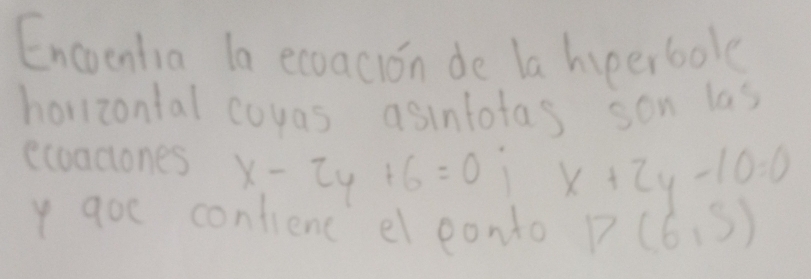 Encuentra la ecuación de la hiperbole
horizontal cuyas asintotas son las
ecuaciones x - 2y + 6 = 0 ; x + 2y - 10 = 0
y que contiene el punto P (6, 5)